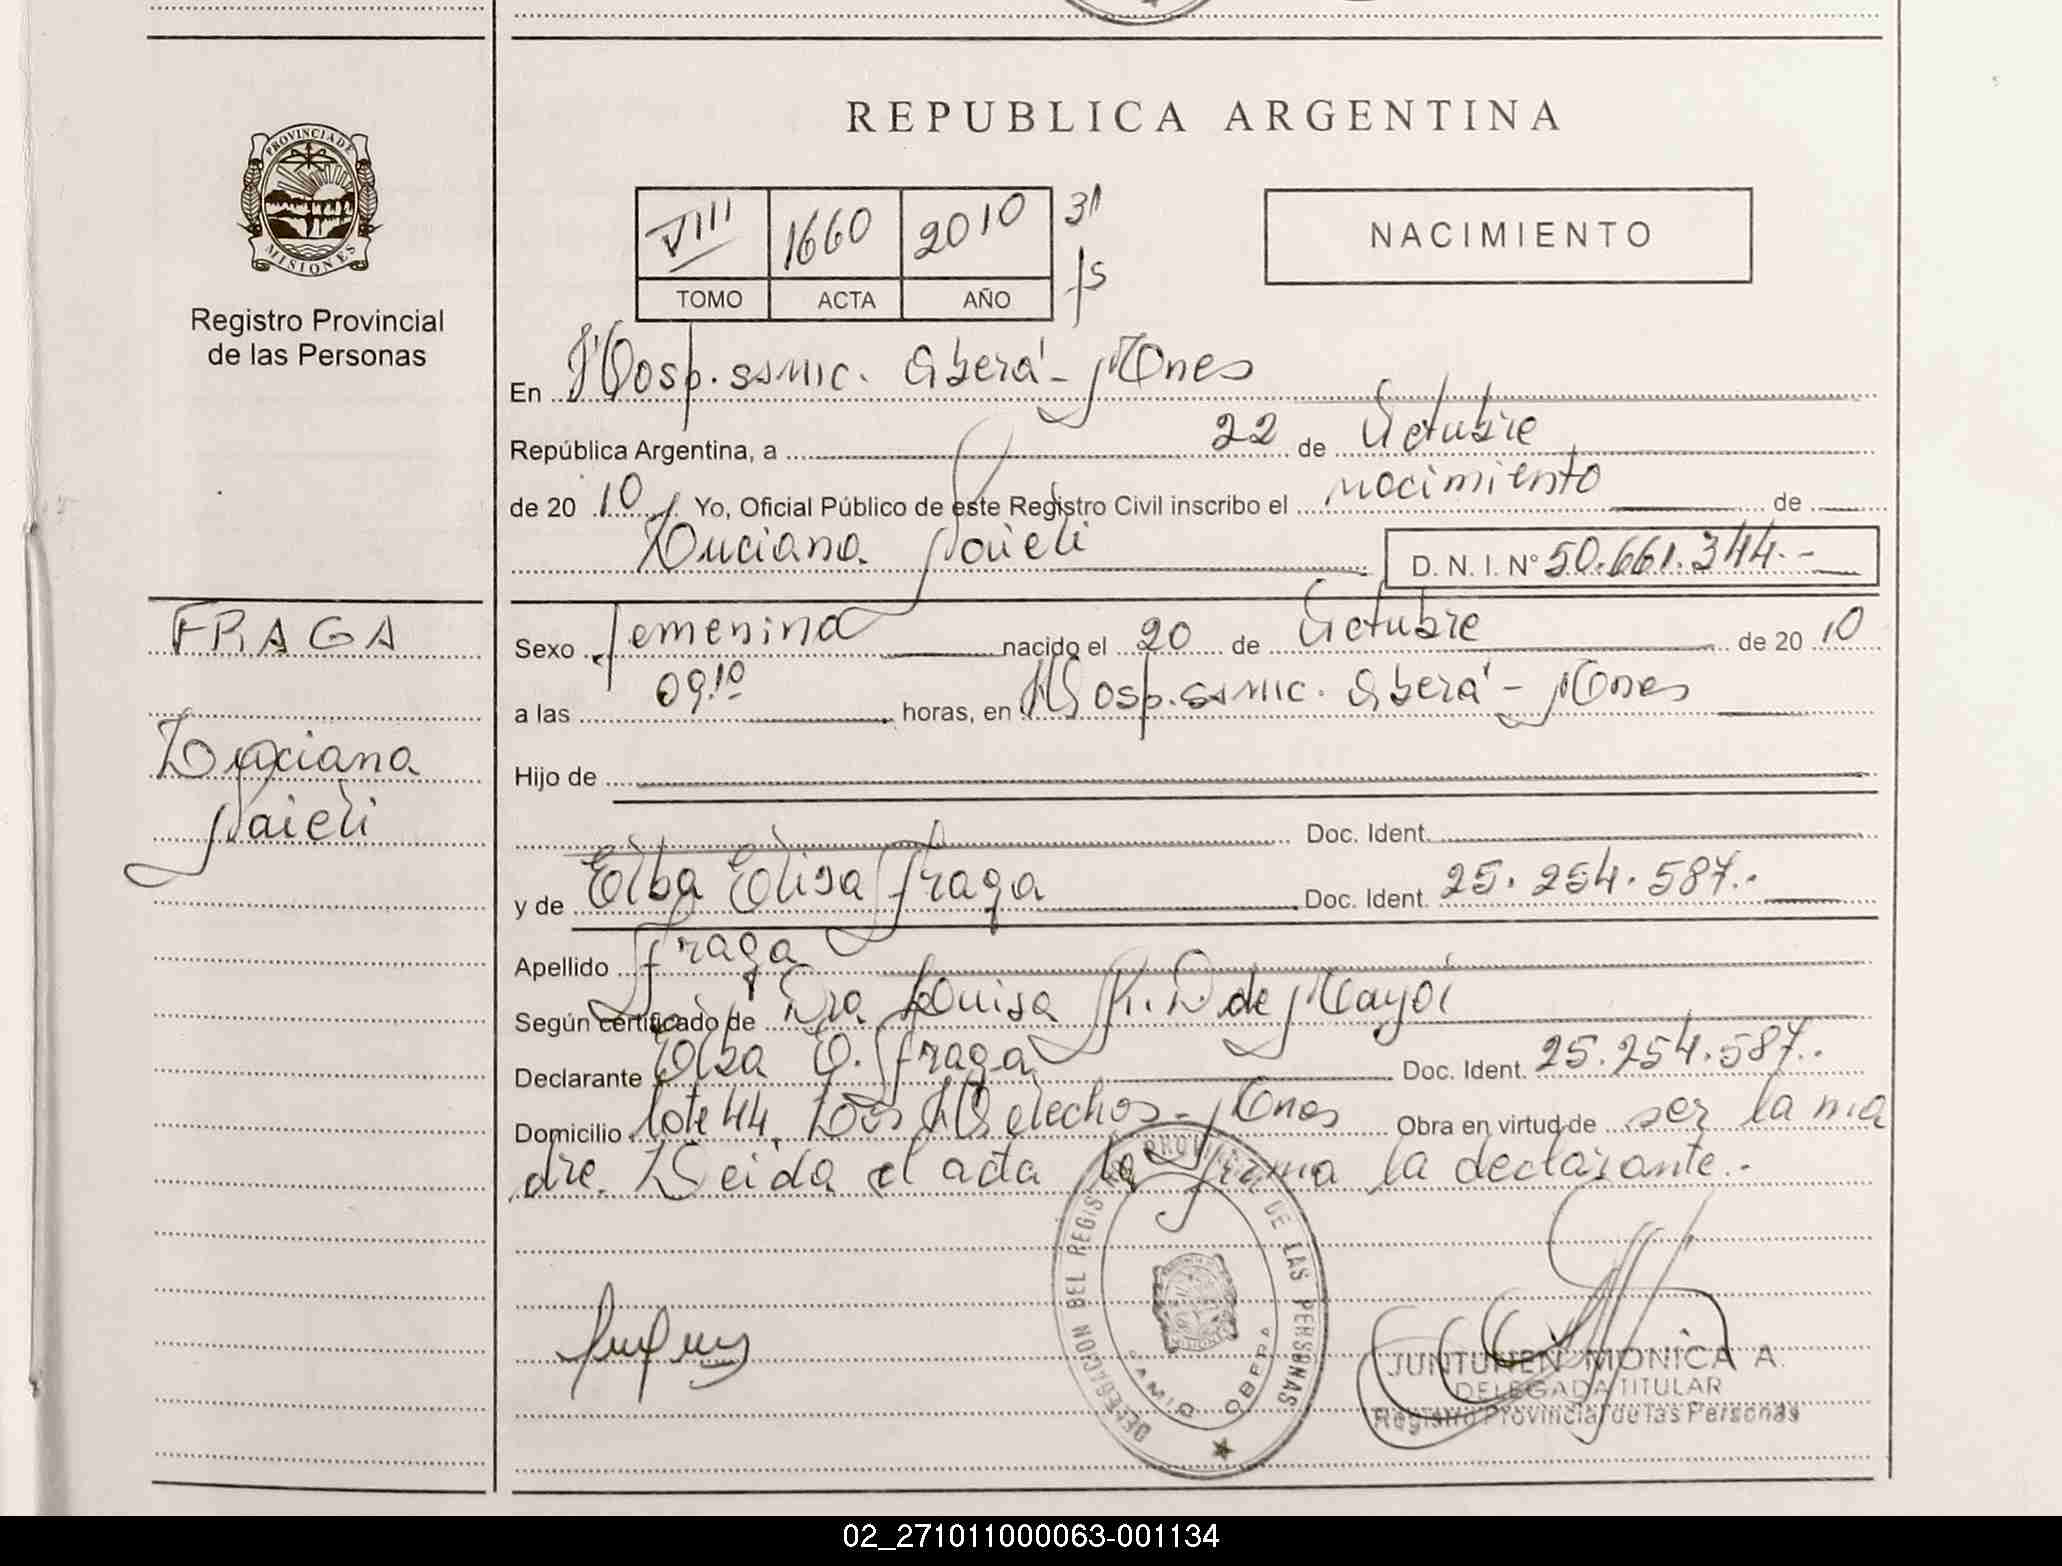 PROVINCIA DE
MISIONES
Registro Provincial
de las Personas
FRAGA
Luciana
Naieli
REPUBLICA ARGENTINA
VIII 1660 2010 31
TOMO ACTA AÑO fs
NACIMIENTO
En Hosp. ssmic. Oberá - Mnes
República Argentina, a 22 de Octubre
de 20 10 Yo, Oficial Público de este Registro Civil inscribo el nacimiento de
Luciana Naieli D. N. I. Nº 50.661.344.-
Sexo femenino nacido el 20 de Octubre de 20 10
a las 09.10 horas, en Hosp. ssmic. Oberá - Mnes
Hijo de
Doc. Ident.
y de Elba Elisa Fraga Doc. Ident. 25.254.587.-
Apellido Fraga
Según certificado de Dra Luisa R. D de
Declarante Elba E. Fraga Doc. Ident. 25.254.587.-
Domicilio lote 44. Los Helechos - Mnes Obra en virtud de ser la ma
dre. Leida el acta la firma la declarante.-
DELEGACION DEL REGISTRO PROVINCIAL DE LAS PERSONAS
OBERA
JUNTUNEN MONICA A.
DELEGADA TITULAR
Registro Provincial de las Personas
02_271011000063-001134